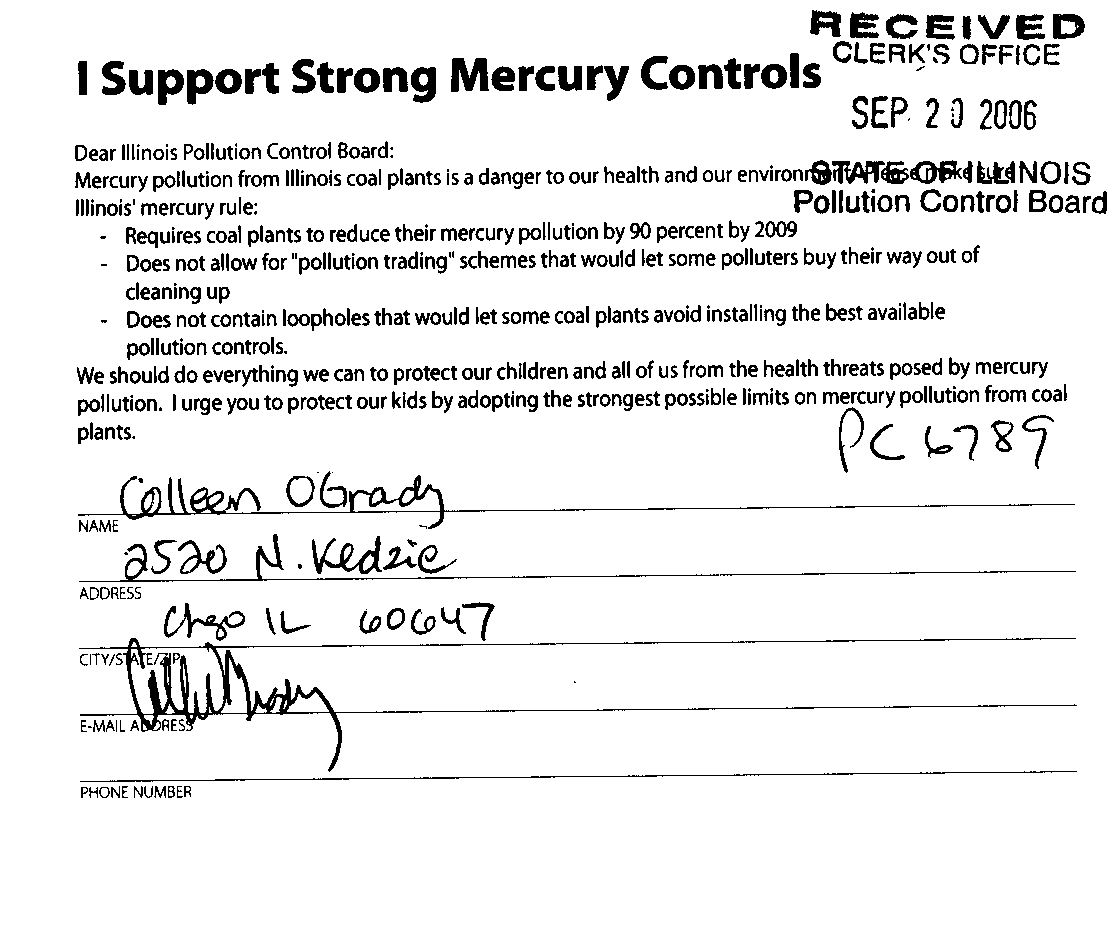 RECEIVED
CLERK'S OFFICE
I Support Strong Mercury Controls
SEP 20 2006
Dear Illinois Pollution Control Board:
Mercury pollution from Illinois coal plants is a danger to our health and our environment. Please make sure
STATE OF ILLINOIS
Illinois' mercury rule:
Pollution Control Board
- Requires coal plants to reduce their mercury pollution by 90 percent by 2009
- Does not allow for "pollution trading" schemes that would let some polluters buy their way out of
cleaning up
- Does not contain loopholes that would let some coal plants avoid installing the best available
pollution controls.
We should do everything we can to protect our children and all of us from the health threats posed by mercury
pollution. I urge you to protect our kids by adopting the strongest possible limits on mercury pollution from coal
plants.
PC 6789
Colleen O'Grady
NAME
2520 N. Kedzie
ADDRESS
Chgo IL 60647
CITY/STATE/ZIP
E-MAIL ADDRESS
PHONE NUMBER